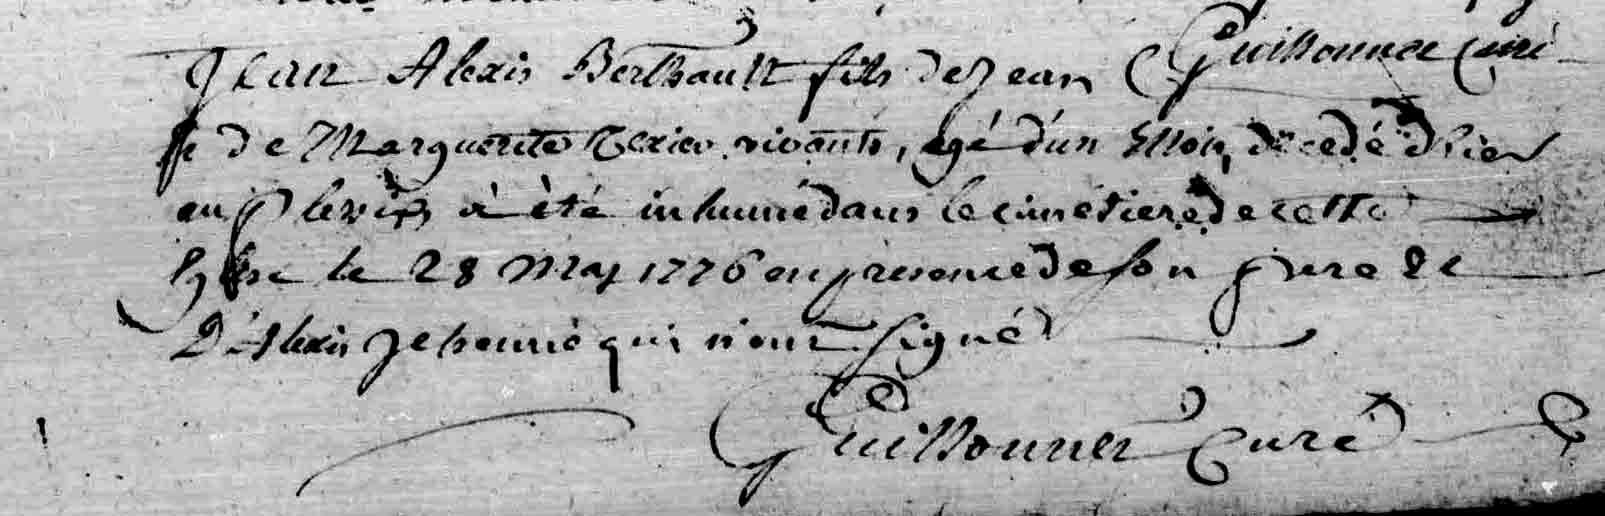 Guillonner Curé
Jean Alexis Berthault fils de Jean
& de Marguerite Texier vivants, agé d'un Mois, decedé d'hier
au Plessis à été inhumé dans le cimétiere de cette
Eglise le 28 May 1776 en presence de son pere &
D'Alexis Jehanne qui n'ont signé
Guillonner Curé